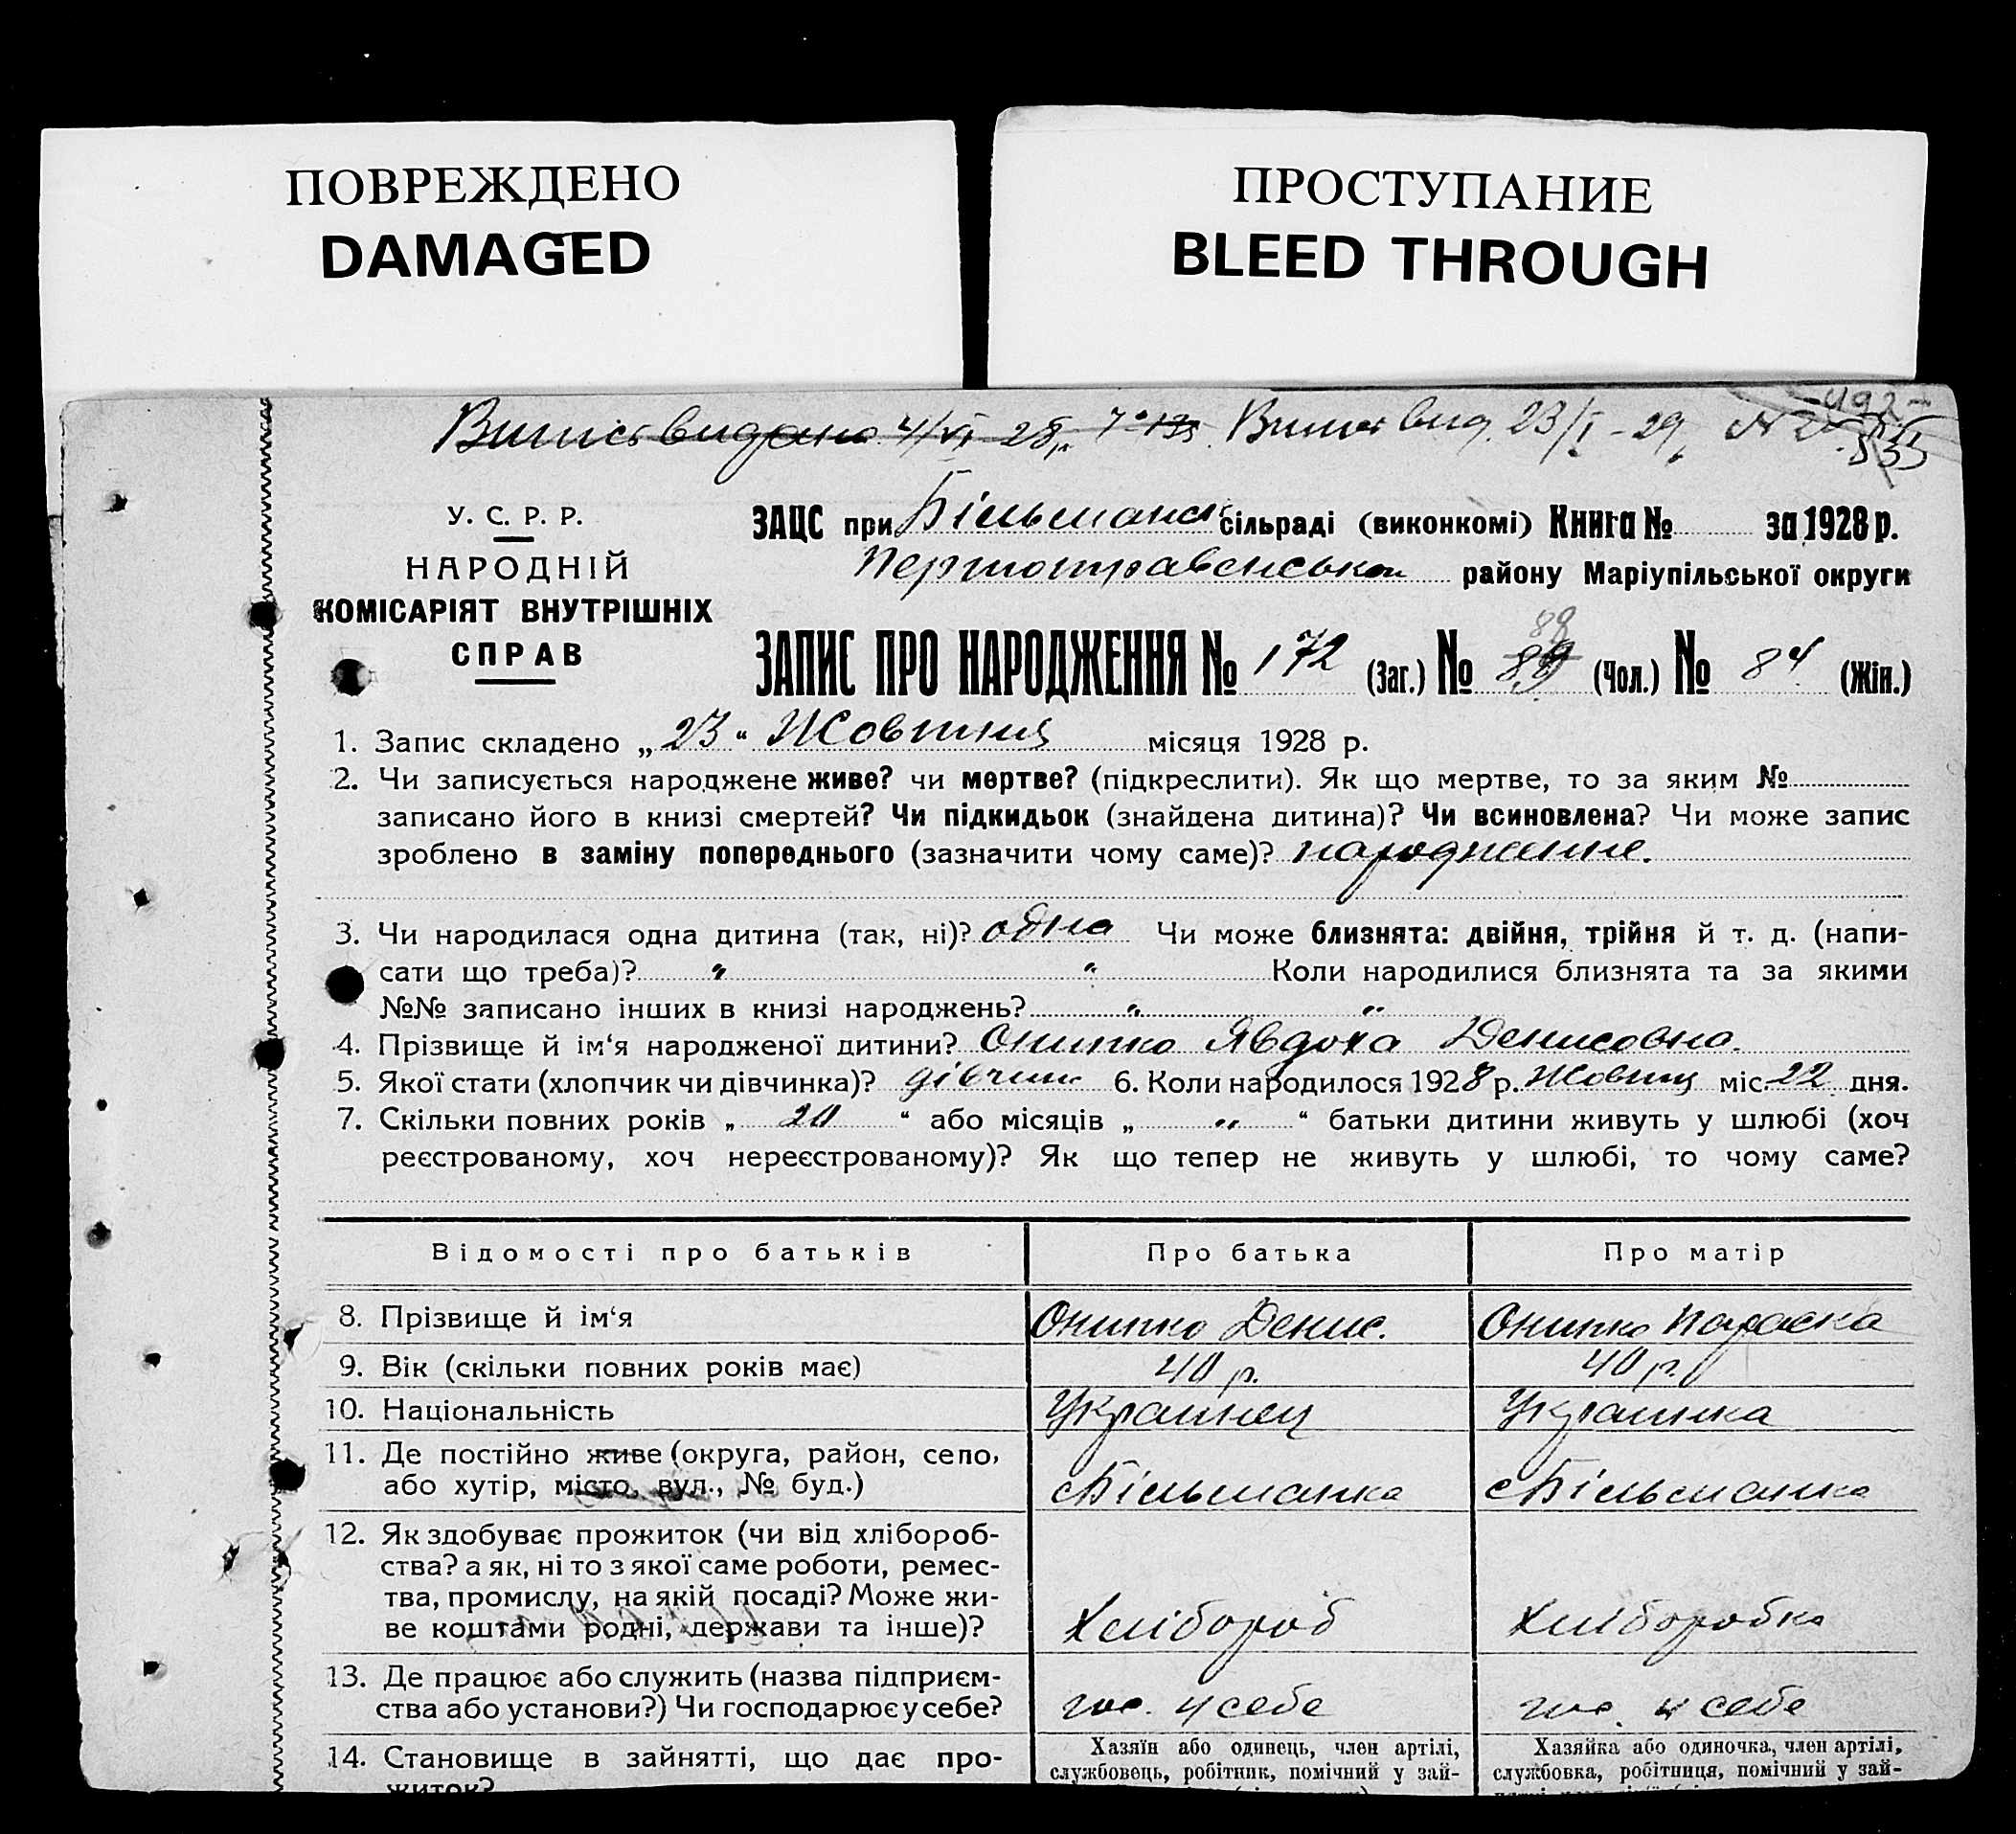 ПОВРЕЖДЕНО
DAMAGED
ПРОСТУПАНИЕ
BLEED THROUGH
Випись видано 4/VI 28 р. Випис вид. 23/I - 29 р. №
У. С. Р. Р.
НАРОДНІЙ
КОМІСАРІЯТ ВНУТРІШНІХ
СПРАВ
ЗАЦС при Більманськ сільраді (виконкомі) Книга № за 1928 р.
Першотравенськом району Маріупільської округи
ЗАПИС ПРО НАРОДЖЕННЯ № 172 (Заг.) № 88 (Чол.) № 84 (Жін.)
1. Запис складено „ 23 “ Жовтня місяця 1928 р.
2. Чи записується народжене живе? чи мертве? (підкреслити). Як що мертве, то за яким №
записано його в книзі смертей? Чи підкидьок (знайдена дитина)? Чи всиновлена? Чи може запис
зроблено в заміну попереднього (зазначити чому саме)? народження.
3. Чи народилася одна дитина (так, ні)? одна Чи може близнята: двійня, трійня й т. д. (напи-
сати що треба)? " " Коли народилися близнята та за якими
№№ записано інших в книзі народжень? " "
4. Прізвище й ім‘я народженої дитини? Онипко Явдоха Денисовна.
5. Якої стати (хлопчик чи дівчинка)? дівчин 6. Коли народилося 1928 р. Жовтц міс. 22 дня.
7. Скільки повних років „ 20 “ або місяців „ " “ батьки дитини живуть у шлюбі (хоч
реєстрованому, хоч нереєстрованому)? Як що тепер не живуть у шлюбі, то чому саме?
Відомості про батьків Про батька Про матір
8. Прізвище й ім‘я Онипко Денис. Онипко Параска
9. Вік (скільки повних років має) 40 р. 40 р.
10. Національність Украинец Украинка
11. Де постійно живе (округа, район, село,
або хутір, місто, вул., № буд.) с Більманка с Більманка
12. Як здобуває прожиток (чи від хлібороб-
ства? а як, ні то з якої саме роботи, ремес-
тва, промислу, на якій посаді? Може жи-
ве коштами родні, держави та інше)? Хлібороб Хліборобка
13. Де працює або служить (назва підприєм-
ства або установи?) Чи господарює у себе? гос. у себе гос. у себе
14. Становище в зайнятті, що дає про-
житок?
Хазяїн або одинець, член артілі,
службовець, робітник, помічний у зай-
Хазяйка або одиночка, член артілі,
службовка, робітниця, помічний у зай-